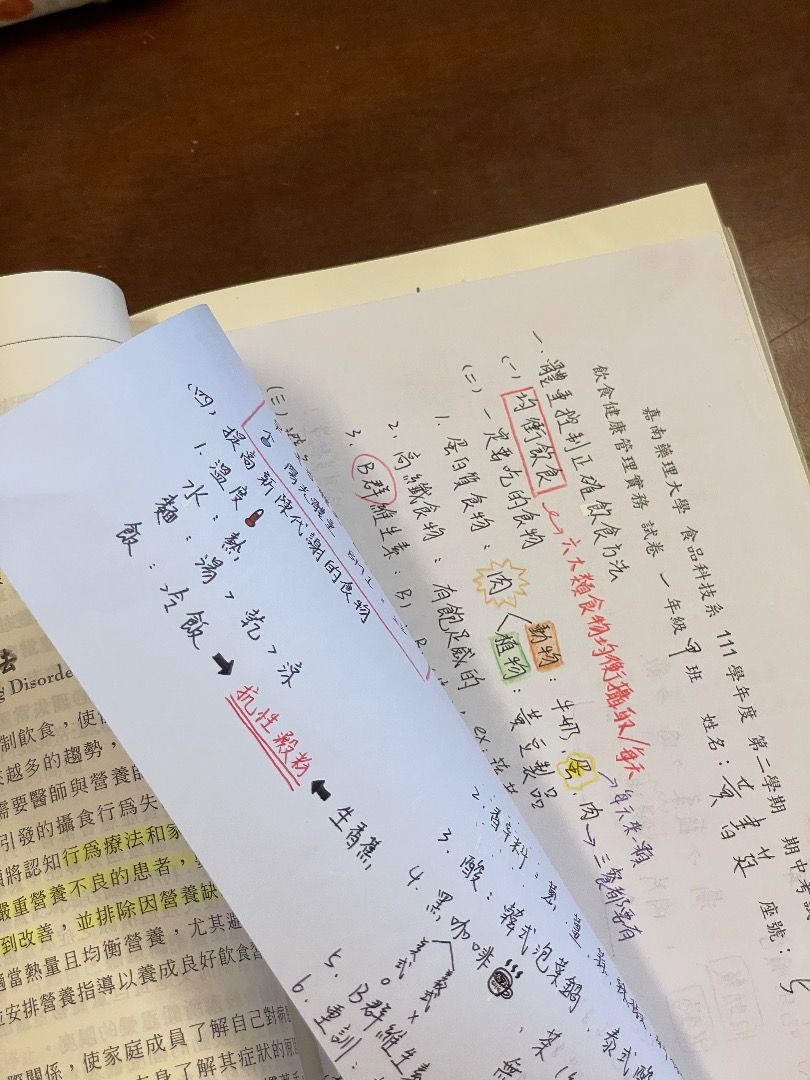 嘉南藥理大學 食品科技系 111 學年度 第二學期 期中考試
飲食健康管理實務 試卷 一年級 甲班 姓名: 黃 座號:
一. 體重控制正確飲食方法
(一) 均衡飲食 → 六大類食物均衡攝取/每天
(二) 一定要吃的食物
1. 蛋白質食物: 肉 動物: 牛奶.蛋.肉 → 三餐都要有
植物: 黃豆製品
2. 高纖食物: 有飽足感的, ex:
3. B群維生素: B1
(三)
(四) 提高新陳代謝的食物
1. 溫度
水: 熱
麵: 湯 > 乾 > 涼
飯: 冷飯 ➡ 抗性澱粉 ⬅ 生香蕉
2. 香辛料: 蔥. 薑
3. 酸: 韓式泡菜鍋. 泰式酸
4. 黑咖啡
美式 o
義式 x
5. B群維生素
6. 重訓:
Disorde
制飲食,使
來越多的趨勢,
需要醫師與營養師
引發的攝食行為失
須將認知行為療法和家
嚴重營養不良的患者,
到改善,並排除因營養缺
適當熱量且均衡營養,尤其避
並安排營養指導以養成良好飲食習
際關係,使家庭成員了解自己對病
身了解其症狀的原